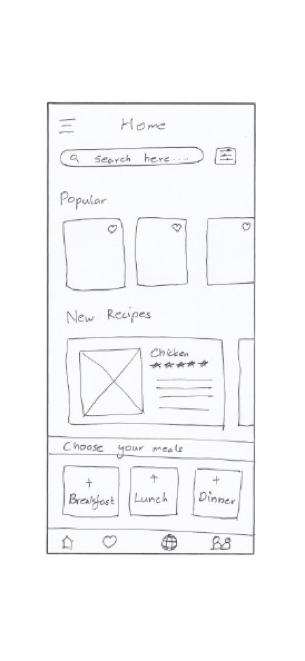 Home
search here....
Popular
New Recipes
Chicken
Choose your meals
+ Breakfast
+ Lunch
+ Dinner